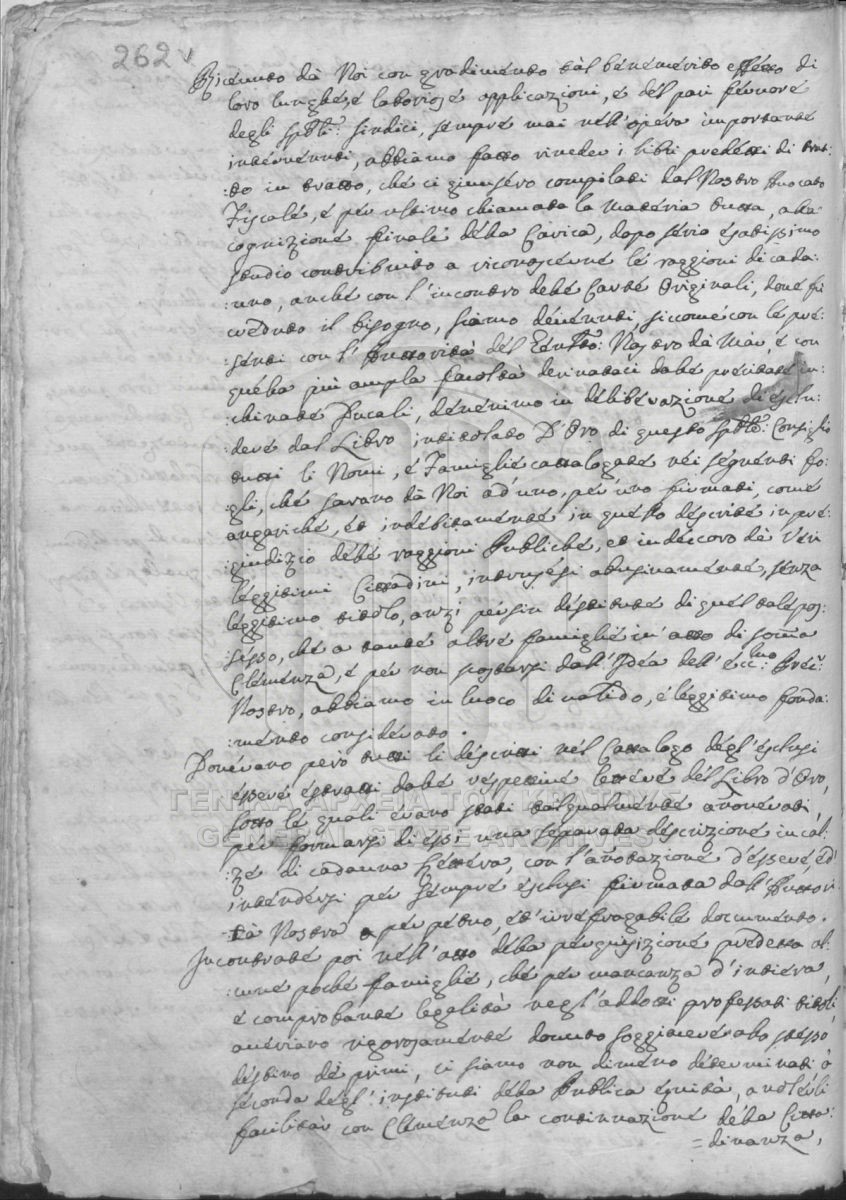 262 v
Ricevuto dà Noi con gradimento dal benemerito effetto di
loro lunghe, e laboriose applicazioni, e del pari fervore
degli Sptti: Sindici, sempre mai nell'opera importante
intervenuti, abbiamo fatto riveder i libri predetti di trat:
:to in tratto, che ci giunsero compilati dal Nostro Avocato
Fiscale, e per ultimo chiamata la Materia tutta, alla
cognizione finale della Carica, dopo serio esatissimo
studio contribuito a riconoscerne le raggioni di cada:
:uno, anche con l'incontro delle Carte Originali, dove fù
creduto il bisogno, siamo devenuti, siccome con le pre:
:senti con l'Auttorità del Nostro dà Mar, e con
quella più ampla facoltà derivataci dalle precitate in:
:chinate Ducali, devenimo in deliberazione di esclu:
:dere dal Libro intitolato D'Oro di questo Sptte: Consiglio
tutti li Nomi, e Famiglie cattalogate nei seguenti fo:
:gli, che sarano dà Noi ad'uno, per uno firmati, come
angariche, et indebitamente in questo descritte in pre:
:giudizio delle raggioni Publiche, et in deccoro de veri
leggitimi Cittadini, intrusesi abusivamente, senza
leggitimo titolo, anzi persin destitute di quel tale pos:
:sesso, che a tante altre famiglie in' atto di somma
Clemenza, e per non scostarsi dall'Idea dell'ecc:mo Prec:r
Nostro, abbiamo in luoco di valido, e leggitimo fonda:
:mento considerato.
Doverano però tutti li descritti nel Cattalogo degl'esclusi
essere estratti dalle respettive lettere del Libro d'Oro,
sotto le quali erano stati talqualmente anoverati,
per formarsi di essi una separata descrizione in cal:
:ze di cadauna lettera, con l'anotazione d'essere, ed'
intendersi per sempre esclusi firmata dall'Auttori:
:tà Nostra a perpetuo, et'irrefragabile documento.
Incontrate poi nell'atto della perquisizione predetta al:
:cune poche famiglie, che per mancanza d'intiera,
e comprobante legalità negl'addotti professati titoli,
averiano rigorosamente dovuto soggiacere allo stesso
destino de primi, ci siamo non dimeno determinati à
seconda degl'instituti della Publica equità, a volerli
facilitar con Clemenza la continuazione della Citta:
=dinanza,
ΓΕΝΙΚΑ ΑΡΧΕΙΑ ΤΟΥ ΚΡΑΤΟΥΣ
GENERAL STATE ARCHIVES